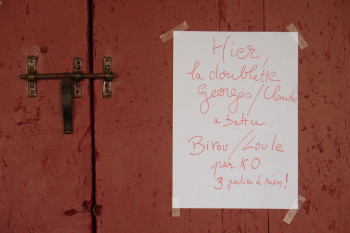 Hier
la doublette
Georges/Claude
a battu
Birou/Loule
par KO
3 parties à rien!